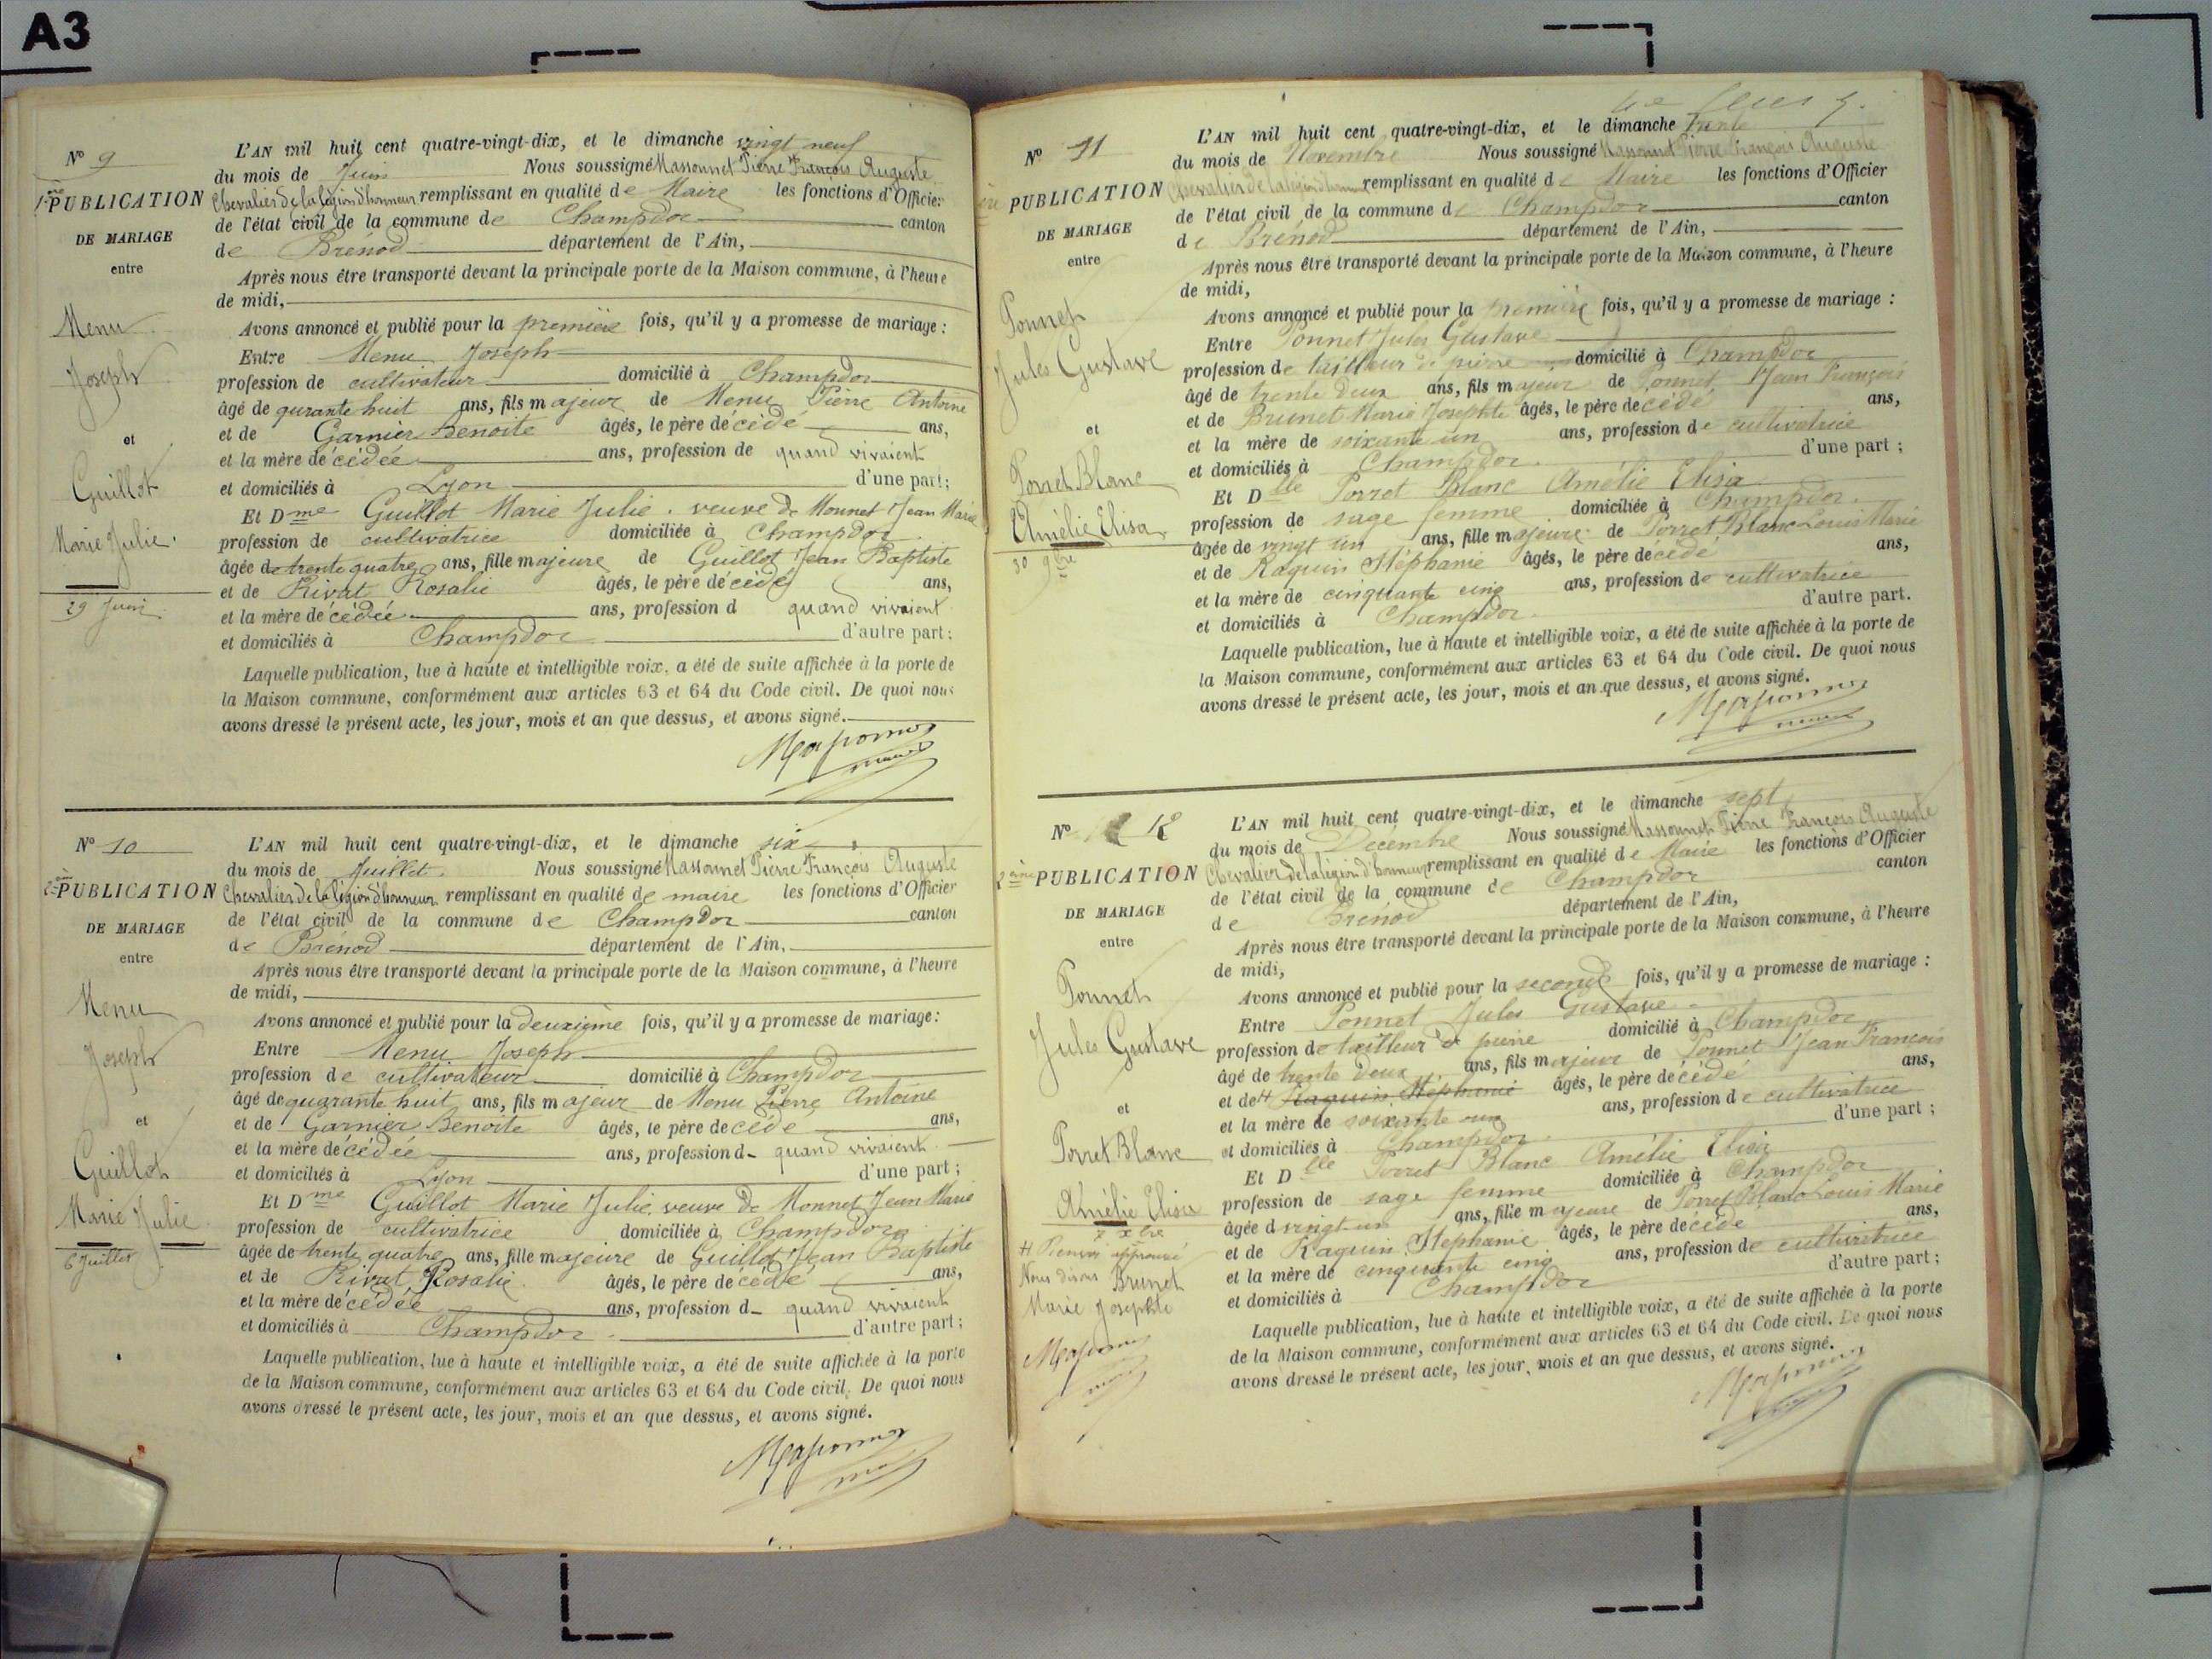 A3
N° 9
1ère PUBLICATION
DE MARIAGE
entre
Menu
Joseph
et
Guillot
Marie Julie.
29 Juin
L'AN mil huit cent quatre-vingt-dix, et le dimanche vingt neuf
du mois de Juin Nous soussigné Massonnet Pierre François Auguste
Chevalier de la légion d'honneur remplissant en qualité de Maire les fonctions d'Officier
de l'état civil de la commune de Champdor canton
de Brénod département de l'Ain,
Après nous être transporté devant la principale porte de la Maison commune, à l'heure
de midi,
Avons annoncé et publié pour la première fois, qu'il y a promesse de mariage :
Entre Menu Joseph
profession de cultivateur domicilié à Champdor
âgé de qurante huit ans, fils majeur de Menu Pierre Antoine
et de Garnier Benoite âgés, le père décédé ans,
et la mère décédée ans, profession de quand vivaient
et domiciliés à Lyon d'une part;
Et Dme Guillot Marie Julie. veuve de Monnet Jean Marie
profession de cultivatrice domiciliée à Champdor.
âgée de trente quatre ans, fille majeure de Guillot Jean Baptiste
et de Rivat Rosalie âgés, le père décédé ans,
et la mère décédée ans, profession d quand vivaient
et domiciliés à Champdor d'autre part;
Laquelle publication, lue à haute et intelligible voix, a été de suite affichée à la porte de
la Maison commune, conformément aux articles 63 et 64 du Code civil. De quoi nous
avons dressé le présent acte, les jour, mois et an que dessus, et avons signé.
Massonnet
N° 10
2ème PUBLICATION
DE MARIAGE
entre
Menu
Joseph
et
Guillot
Marie Julie
6 Juillet
L'AN mil huit cent quatre-vingt-dix, et le dimanche six
du mois de Juillet Nous soussigné Massonnet Pierre François Auguste
Chevalier de la légion d'honneur remplissant en qualité de maire les fonctions d'Officier
de l'état civil de la commune de Champdor canton
de Brénod département de l'Ain,
Après nous être transporté devant la principale porte de la Maison commune, à l'heure
de midi,
Avons annoncé et publié pour la deuxième fois, qu'il y a promesse de mariage:
Entre Menu Joseph
profession de cultivateur domicilié à Champdor
âgé de quarante huit ans, fils majeur de Menu Pierre Antoine
et de Garnier Benoite âgés, le père décédé ans,
et la mère décédée ans, profession d quand vivaient
et domiciliés à Lyon d'une part;
Et Dme Guillot Marie Julie, veuve de Monnet Jean Marie
profession de cultivatrice domiciliée à Champdor
âgée de trente quatre ans, fille majeure de Guillot Jean Baptiste
et de Rivat Rosalie. âgés, le père décédé ans,
et la mère décédée ans, profession d quand vivaient
et domiciliés à Champdor. d'autre part;
Laquelle publication, lue à haute et intelligible voix, a été de suite affichée à la porte
de la Maison commune, conformément aux articles 63 et 64 du Code civil. De quoi nous
avons dressé le présent acte, les jour, mois et an que dessus, et avons signé.
Massonnet
N° 11
ère PUBLICATION
DE MARIAGE
entre
Ponnet
Jules Gustave
et
Porret Blanc
Amélie Elisa
30 9bre
L'AN mil huit cent quatre-vingt-dix, et le dimanche trente
du mois de Novembre Nous soussigné Massonnet Pierre François Auguste
Chevalier de la légion d'honneur remplissant en qualité de Maire les fonctions d'Officier
de l'état civil de la commune de Champdor canton
de Brénod département de l'Ain,
Après nous être transporté devant la principale porte de la Maison commune, à l'heure
de midi,
Avons annoncé et publié pour la première fois, qu'il y a promesse de mariage :
Entre Ponnet Jules Gustave
profession de tailleur de pierre domicilié à Champdor
âgé de trente deux ans, fils majeur de Ponnet Jean François
et de Brunet Marie Josephte âgés, le père décédé ans,
et la mère de soixante un ans, profession de cultivatrice
et domiciliés à Champdor. d'une part;
Et Dlle Porret Blanc Amélie Elisa
profession de sage femme domiciliée à Champdor.
âgée de vingt un ans, fille majeure de Porret Blanc Louis Marie
et de Raquin Stéphanie âgés, le père décédé ans,
et la mère de cinquante cinq ans, profession de cultivatrice
et domiciliés à Champdor. d'autre part.
Laquelle publication, lue à haute et intelligible voix, a été de suite affichée à la porte de
la Maison commune, conformément aux articles 63 et 64 du Code civil. De quoi nous
avons dressé le présent acte, les jour, mois et an que dessus, et avons signé.
Massonnet
N° 12
2ème PUBLICATION
DE MARIAGE
entre
Ponnet
Jules Gustave
et
Porret Blanc
Amélie Elisa
7 Xbre
Nous disons Brunet
Marie Josephte
Massonnet
L'AN mil huit cent quatre-vingt-dix, et le dimanche sept
du mois de Décembre Nous soussigné Massonnet Pierre François Auguste
Chevalier de la légion d'honneur remplissant en qualité de Maire les fonctions d'Officier
de l'état civil de la commune de Champdor canton
de Brénod département de l'Ain,
Après nous être transporté devant la principale porte de la Maison commune, à l'heure
de midi,
Avons annoncé et publié pour la seconde fois, qu'il y a promesse de mariage :
Entre Ponnet Jules Gustave
profession de tailleur de pierre domicilié à Champdor
âgé de trente deux ans, fils majeur de Ponnet Jean François
et de # Raquin Stéphanie âgés, le père décédé ans,
et la mère de soixante un ans, profession de cultivatrice
et domiciliés à Champdor. d'une part;
Et Dlle Porret Blanc Amélie Elisa
profession de sage femme domiciliée à Champdor
âgée d vingt-un ans, fille majeure de Porret Blanc Louis Marie
et de Raquin Stephanie âgés, le père décédé ans,
et la mère de cinquante cinq ans, profession de cultivatrice
et domiciliés à Champdor d'autre part;
Laquelle publication, lue à haute et intelligible voix, a été de suite affichée à la porte
de la Maison commune, conformément aux articles 63 et 64 du Code civil. De quoi nous
avons dressé le présent acte, les jour, mois et an que dessus, et avons signé.
Massonnet